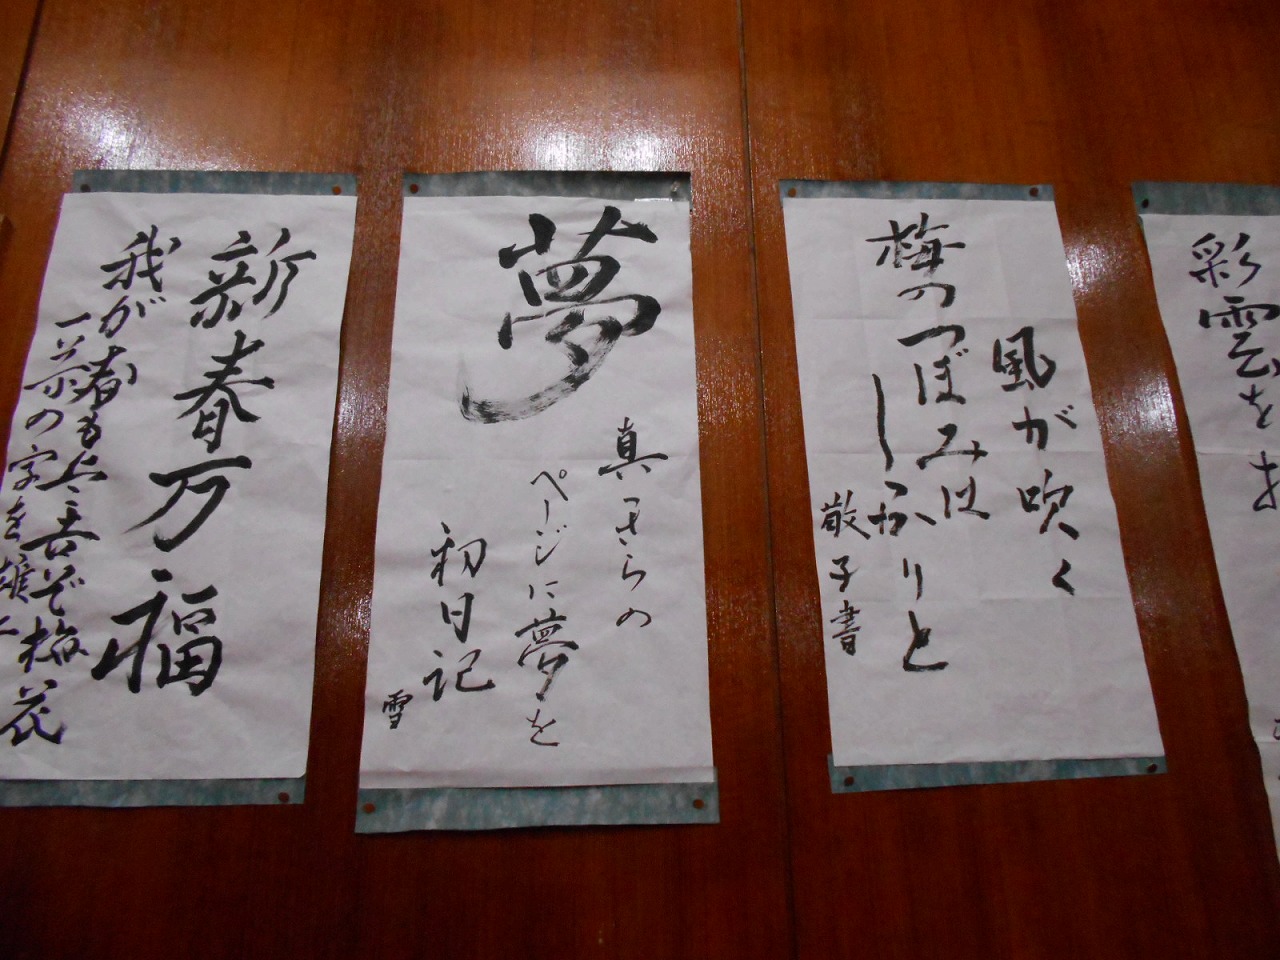 彩雲を
風が吹く
梅のつぼみは
しっかりと
敬子書
夢
真っさらの
ページに夢を
初日記
雪
新春万福
我が春も上々吉ぞ梅花
一茶の字を